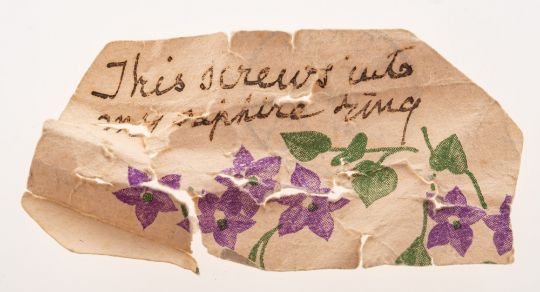 This screws into
my saphire ring